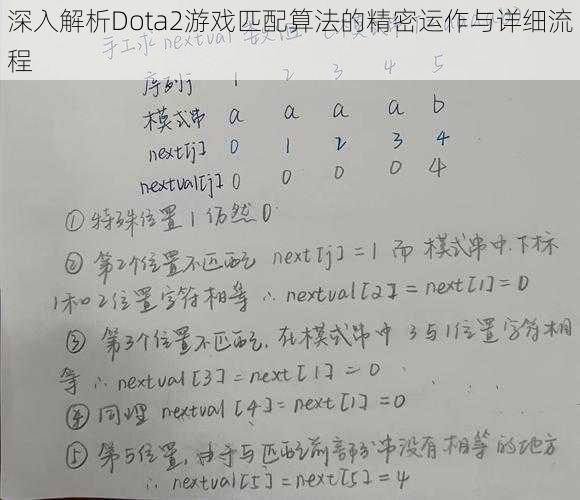 深入解析Dota2游戏匹配算法的精密运作与详细流
程
手工求 nextval 数组
序列j 1 2 3 4 5
模式串 a a a a b
next[j] 0 1 2 3 4
nextval[j] 0 0 0 0 4
①特殊位置1仍然0.
② 第2个位置不匹配 next[j]=1 而 模式串中.下标
1和2位置字符相等 ∴ nextval[2]=next[1]=0
③ 第3个位置不匹配,在模式串中 3与1位置字符相
等 ∴ nextval[3]=next[1]=0
④ 同理 nextval[4]=next[1]=0
⑤ 第5位置,由于与匹配前部分串没有相等的地方
∴ nextval[5]=next[5]=4